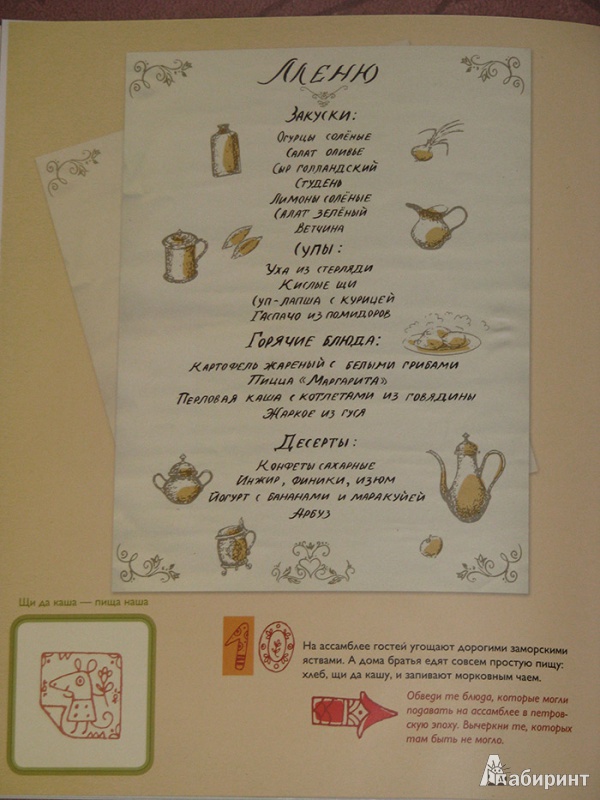 Меню
Закуски:
Огурцы солёные
Салат оливье
Сыр голландский
Студень
Лимоны солёные
Салат зелёный
Ветчина
Супы:
Уха из стерляди
Кислые щи
Суп-лапша с курицей
Гаспачо из помидоров
Горячие блюда:
Картофель жареный с белыми грибами
Пицца «Маргарита»
Перловая каша с котлетами из говядины
Жаркое из гуся
Десерты:
Конфеты сахарные
Инжир, финики, изюм
Йогурт с бананами и маракуйей
Арбуз
Щи да каша — пища наша
10
На ассамблее гостей угощают дорогими заморскими
яствами. А дома братья едят совсем простую пищу:
хлеб, щи да кашу, и запивают морковным чаем.
Обведи те блюда, которые могли
подавать на ассамблее в петров-
скую эпоху. Вычеркни те, которых
там быть не могло.
Лабиринт